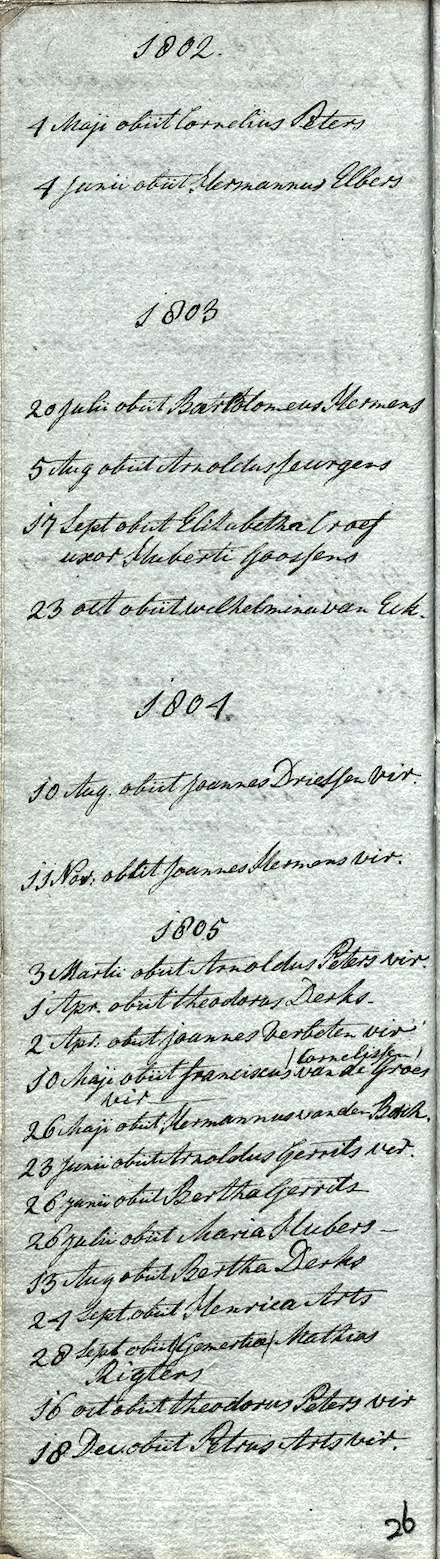 1802.
4 Maji obiit Cornelius Peters
4 Junii obiit Hermannus Elbers
1803
20 Julii obiit Bartolomeus Hermens
5 Aug obiit Arnoldus Jeurgens
17 Sept obiit Elizabetha Croef
uxor Huberti Goossens
23 oct obiit Wilhelmina van Eck.
1804
10 Aug. obiit Joannes Driessen vir.
11 Nov. obiit Joannes Hermens vir.
1805
3 Martii obiit Arnoldus Peters vir.
1 Apr. obiit theodorus Derks-
2 Apr. obiit Joannes Verbeten vir
(Cornelissen)
10 Maji obiit franciscus van de Groes
vir
26 Maji obiit Hermannus vanden
23 Junii obiit Arnoldus Gerrits vir.
26 Junii obiit Bertha Gerrits
26 Julii obiit Maria Hubers-
13 Aug obiit Bertha Derks
24 Sept. obiit Henrica Arts
28 Sept obiit (Gemertia) Mathias
Rigters
16 oct obiit theodorus Peters vir
18 Dec. obiit Petrus Arts vir.
26